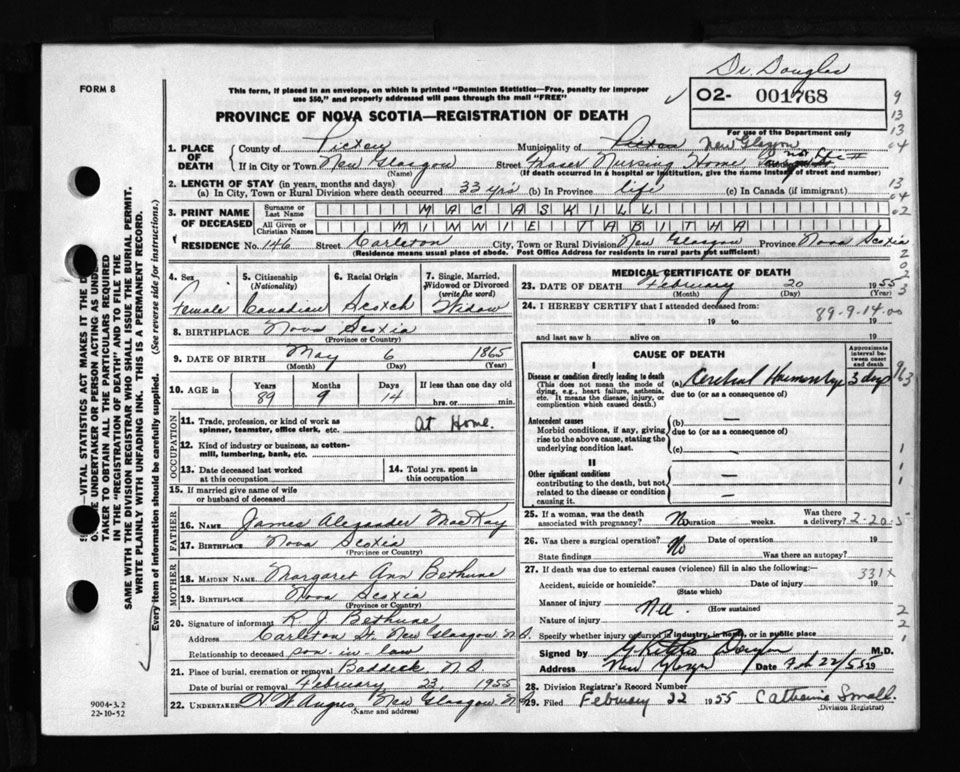 FORM 8
Dr. Douglas
This form, if placed in an envelope, on which is printed "Dominion Statistics—Free, penalty for improper
use $50," and properly addressed will pass through the mail "FREE"
O2- 001768
PROVINCE OF NOVA SCOTIA—REGISTRATION OF DEATH
For use of the Department only
1. PLACE OF DEATH
County of Pictou Municipality of Pictou New Glasgow
If in City or Town New Glasgow Street Fraser Nursing Home
(Name) (If death occurred in a hospital or institution, give the name instead of street and number)
2. LENGTH OF STAY (in years, months and days)
(a) In City, Town or Rural Division where death occurred 33 yrs (b) In Province life (c) In Canada (if immigrant)
3. PRINT NAME OF DECEASED
Surname or Last Name MACASKILL
All Given or Christian Names MIMMIE TABITHA
RESIDENCE No. 146 Street Carleton City, Town or Rural Division New Glasgow Province Nova Scotia
(Residence means usual place of abode. Post Office Address for residents in rural parts not sufficient)
4. Sex Female
5. Citizenship (Nationality) Canadian
6. Racial Origin Scotch
7. Single, Married, Widowed or Divorced (write the word) Widow
8. BIRTHPLACE Nova Scotia
(Province or Country)
9. DATE OF BIRTH May 6 1865
(Month) (Day) (Year)
10. AGE in Years 89 Months 9 Days 14 If less than one day old
hrs. or min.
OCCUPATION
11. Trade, profession, or kind of work as spinner, teamster, office clerk, etc. At Home.
12. Kind of industry or business, as cotton-mill, lumbering, bank, etc.
13. Date deceased last worked at this occupation
14. Total yrs. spent in this occupation
15. If married give name of wife or husband of deceased
FATHER
16. NAME James Alexander MacKay
17. BIRTHPLACE Nova Scotia
(Province or Country)
MOTHER
18. MAIDEN NAME Margaret Ann Bethune
19. BIRTHPLACE Nova Scotia
(Province or Country)
20. Signature of informant R. J. Bethune
Address Carleton St. New Glasgow N.S.
Relationship to deceased son-in-law
21. Place of burial, cremation or removal Baddeck N.S
Date of burial or removal February 23, 1955
22. UNDERTAKER H W Angus New Glasgow N.S.
(Name and address)
MEDICAL CERTIFICATE OF DEATH
23. DATE OF DEATH February 20 1955
(Month) (Day) (Year)
24. I HEREBY CERTIFY that I attended deceased from:
89-9-14-00
19 to 19
and last saw h alive on 19
CAUSE OF DEATH
Approximate interval between onset and death
I
Disease or condition directly leading to death
(This does not mean the mode of dying, e.g., heart failure, asthenia, etc. It means the disease, injury, or complication which caused death.)
(a) Cerebral Haemorrhage 3 days
due to (or as a consequence of)
Antecedent causes
Morbid conditions, if any, giving rise to the above cause, stating the underlying condition last.
(b) —
due to (or as a consequence of)
(c) —
II
Other significant conditions contributing to the death, but not related to the disease or condition causing it.
—
—
25. If a woman, was the death associated with pregnancy? No Duration weeks. Was there a delivery? 2-20-5
26. Was there a surgical operation? No Date of operation 19
State findings Was there an autopsy?
27. If death was due to external causes (violence) fill in also the following:
331X
Accident, suicide or homicide? Date of injury 19
(State which)
Manner of injury
(How sustained
Nature of injury
Specify whether injury occurred in industry, in home, or in public place
Signed by Douglas M.D.
Address New Glasgow Date Feb 22/55 19
28. Division Registrar's Record Number
29. Filed February 22 1955 Catherine Small.
(Division Registrar)
VITAL STATISTICS ACT MAKES IT THE
UNDERTAKER OR PERSON ACTING AS
TAKER TO OBTAIN ALL THE PARTICULARS REQUIRED
IN THE "REGISTRATION OF DEATH" AND TO FILE THE
SAME WITH THE DIVISION REGISTRAR WHO SHALL ISSUE THE BURIAL PERMIT.
WRITE PLAINLY WITH UNFADING INK. THIS IS A PERMANENT RECORD.
Every item of information should be carefully supplied. (See reverse side for instructions.)
9
13
13
04
13
04
02
2
1
9004-3.2
22-10-52